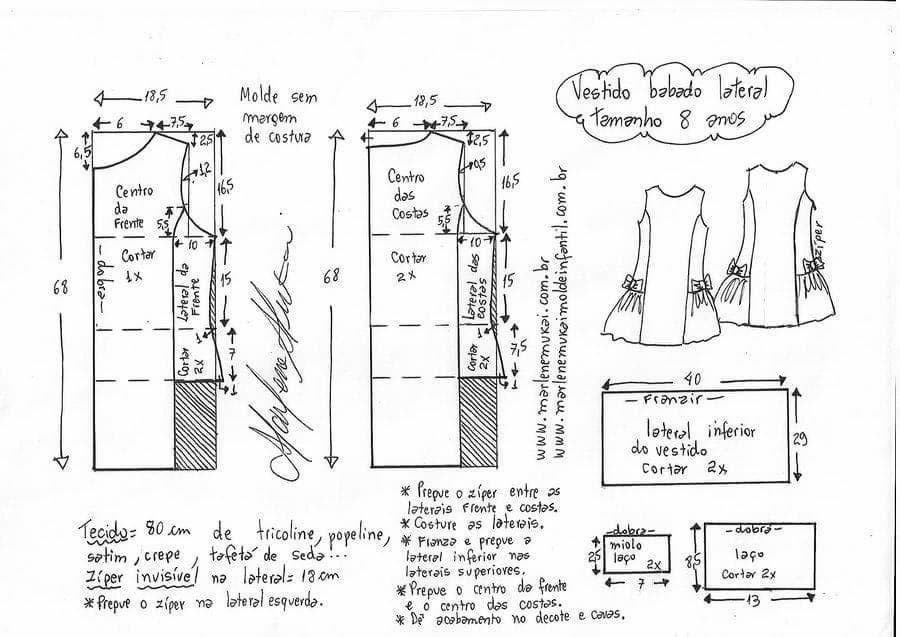 Vestido babado lateral
tamanho 8 anos
Molde sem
margem
de costura
18,5
6
7,5
2,5
6,5
1,2
16,5
Centro
da
Frente
5,5
10
Cortar
1x
- dobra -
Lateral da
Frente
15
68
1
7
Cortar
2x
1
18,5
6
7,5
2,5
0,5
16,5
Centro
das
Costas
5,5
10
Cortar
2x
Lateral das
costas
15
68
1
7,5
Cortar
2x
1
www.marlenemukai.com.br
www.marlenemukaimoldeinfantil.com.br
zíper
40
- Franzir -
lateral inferior
do vestido
cortar 2x
29
-dobra-
miolo
laço
2x
2,5
7
-dobra-
laço
Cortar 2x
8,5
13
Tecido= 80 cm de tricoline, popeline,
satim, crepe, tafetá de seda...
Zíper invisível na lateral= 18 cm
* Pregue o zíper na lateral esquerda.
* Pregue o zíper entre as
laterais frente e costas.
* Costure as laterais.
* Franza e pregue a
lateral inferior nas
laterais superiores.
* Pregue o centro da frente
e o centro das costas.
* Dê acabamento no decote e cavas.